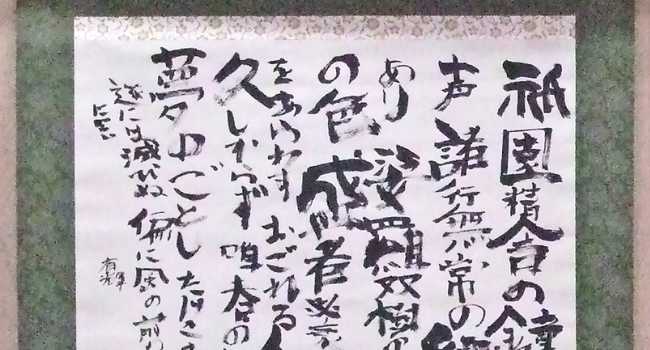 祇園精舎の鐘
声諸行無常の
あり娑羅双樹の
の色盛者必
をあらわすおごれる人
久しからず唯春の
夢のごとしたけき
遂には滅びぬ偏に風の前
有輝